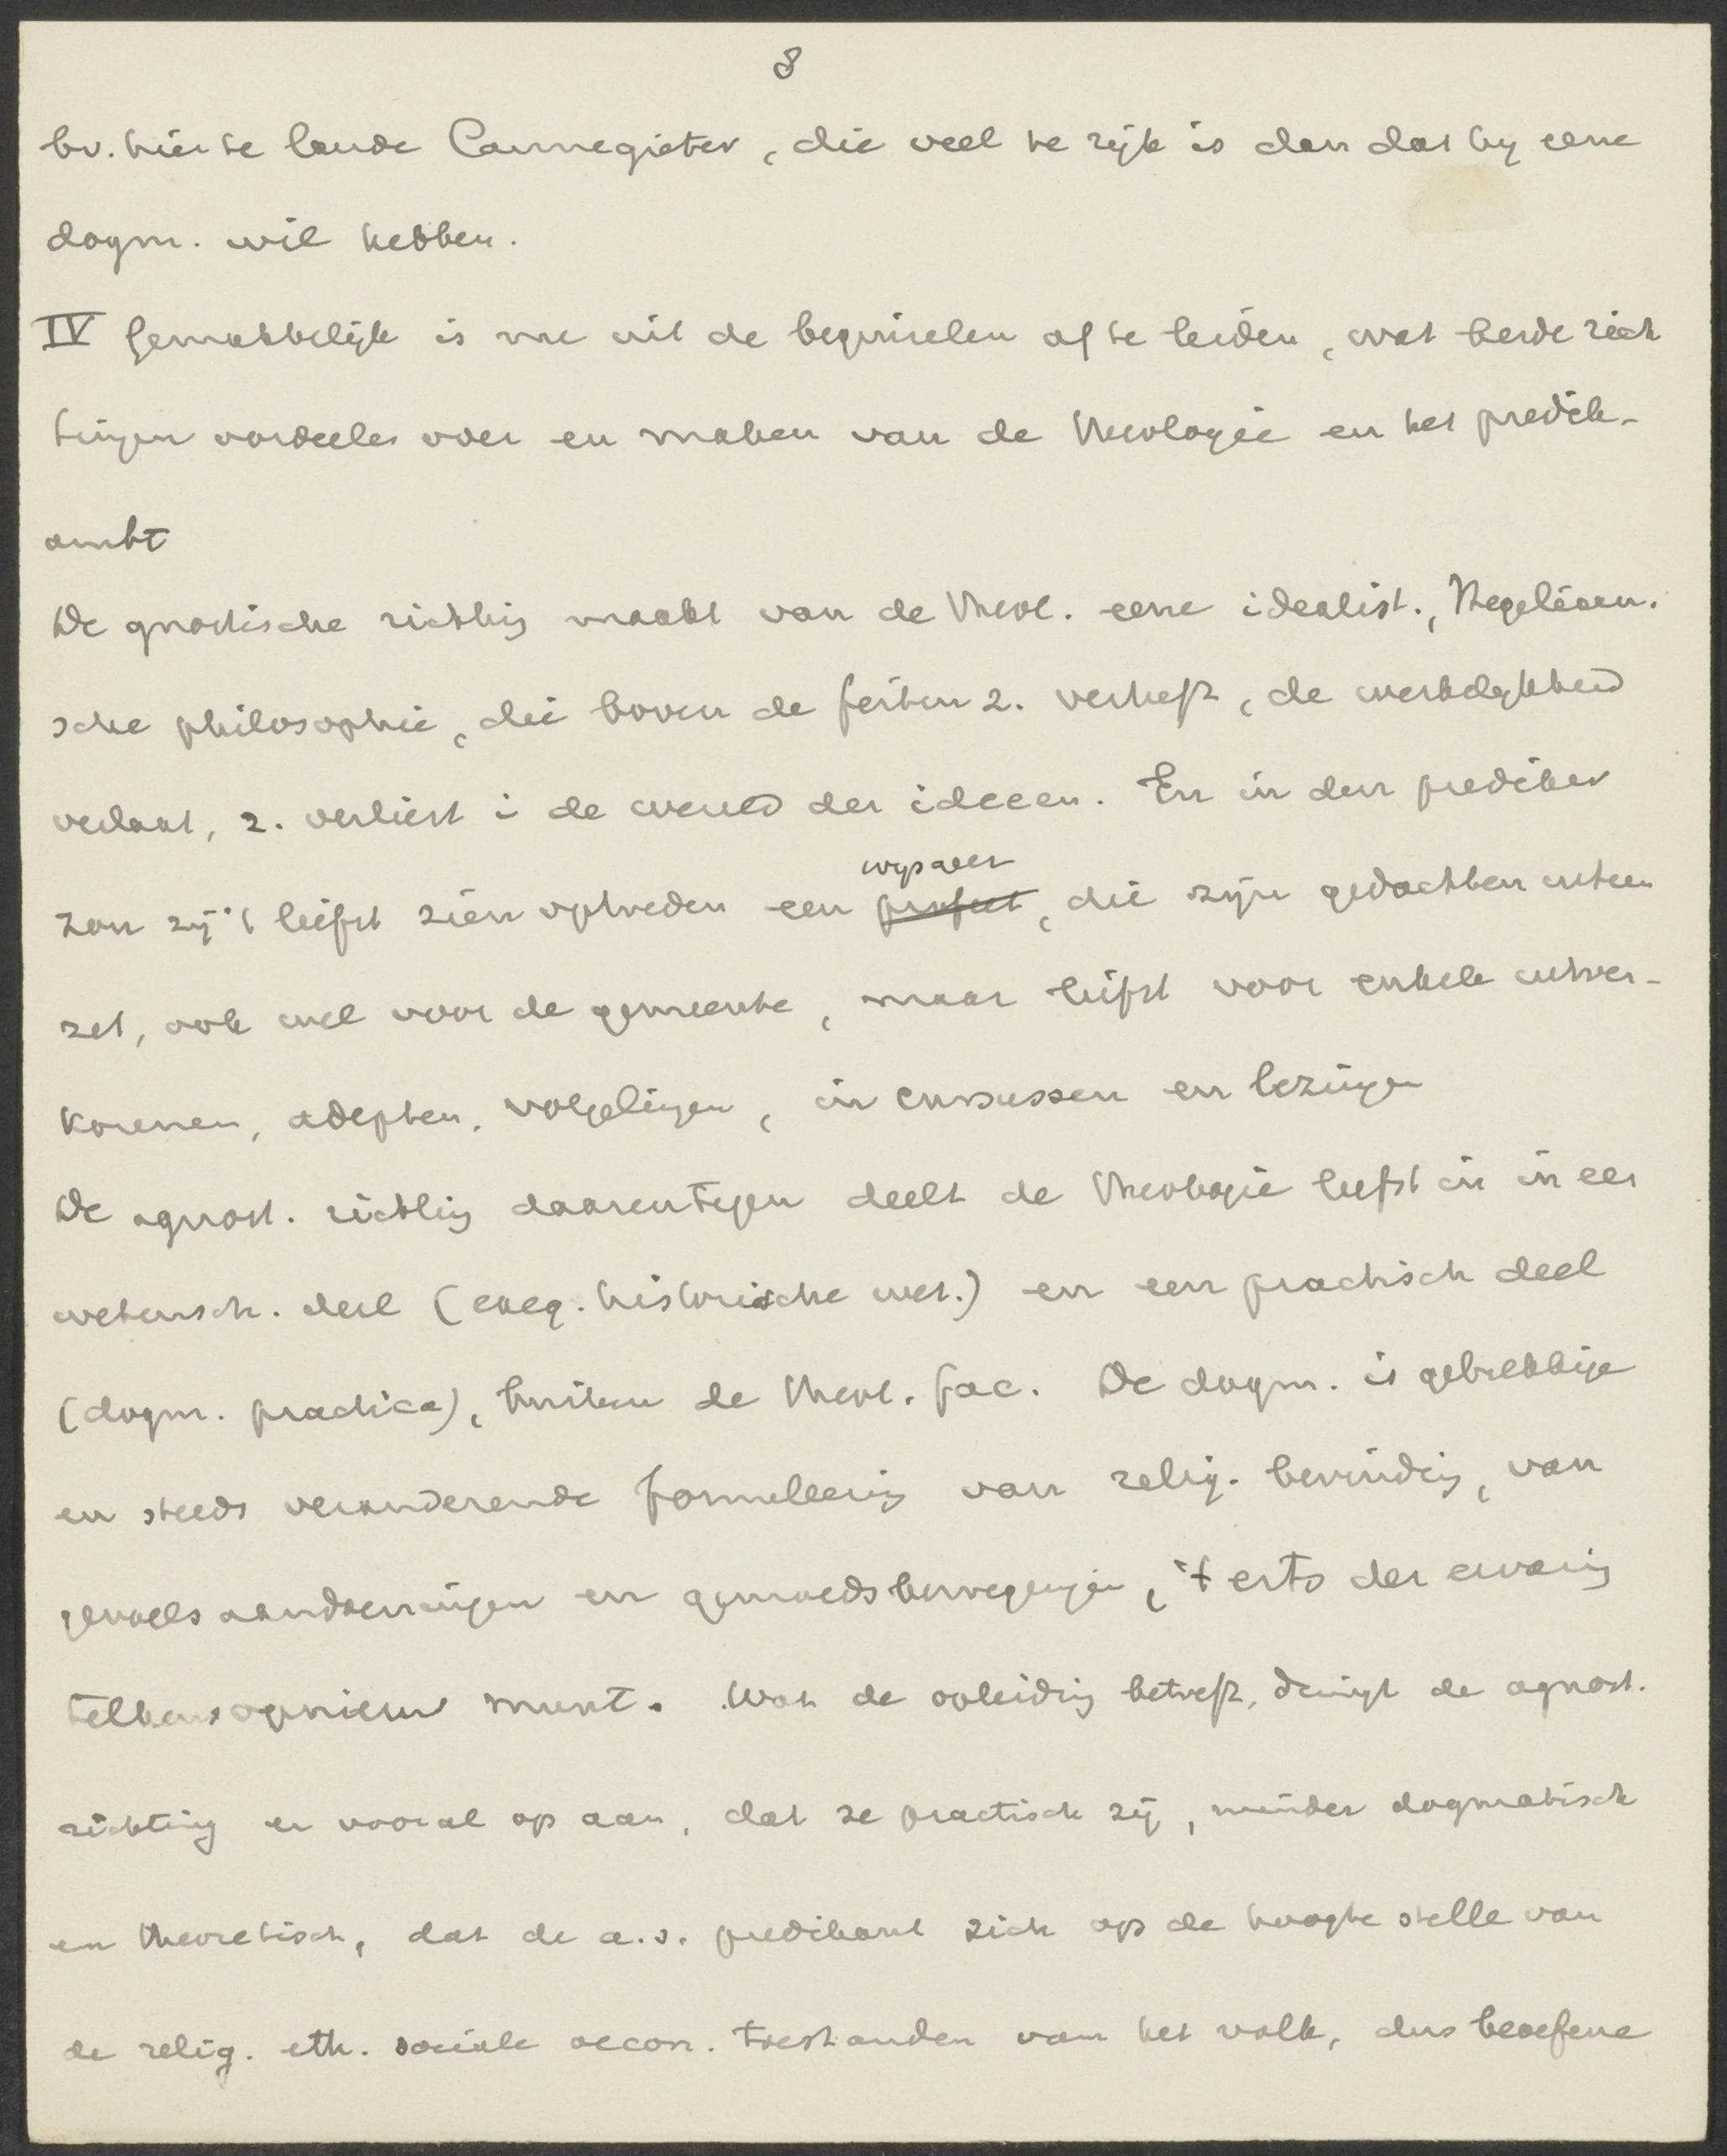 8
bv. hier te lande Cannegieter, die veel te rijk is dan dat hij eene
dogm. wil hebben.
IV Gemakkelijk is nu uit de beginselen af te leiden, wat beide rich
tingen oordeelen over en maken van de theologie en het predik-
ambt
De gnostische richting maakt van de theol. eene idealist., Hegeliaan.
sche philosophie, die boven de feiten z. verheft, de werkelijkheid
verlaat, z. verliest i de wereld der ideeen. En in den prediker
zou zij 't liefst zien optreden een wijsgeer
profeet, die zijn gedachten uiteen
zet, ook wel voor de gemeente, maar liefst voor enkele uitver-
korenen, adepten, volgelingen, in cursussen en lezingen
De agnost. richting daarentegen deelt de theologie liefst in in een
wetensch. deel (exeg. historische wet.) en een practisch deel
(dogm. practica), buiten de theol. fac. De dogm. is gebrekkige
en steeds veranderende formuleering van relig. bevinding, van
gevoels aandoeningen en gemoedsbewegingen, 't erts der ervaring
telkens opnieuw munt. Wat de opleiding betreft, dringt de agnost.
richting er vooral op aan, dat ze practisch zij, minder dogmatisch
en theoretisch, dat de a.s. predikant zich op de hoogte stelle van
de relig. eth. sociale oecon. toestanden van het volk, dus beoefene